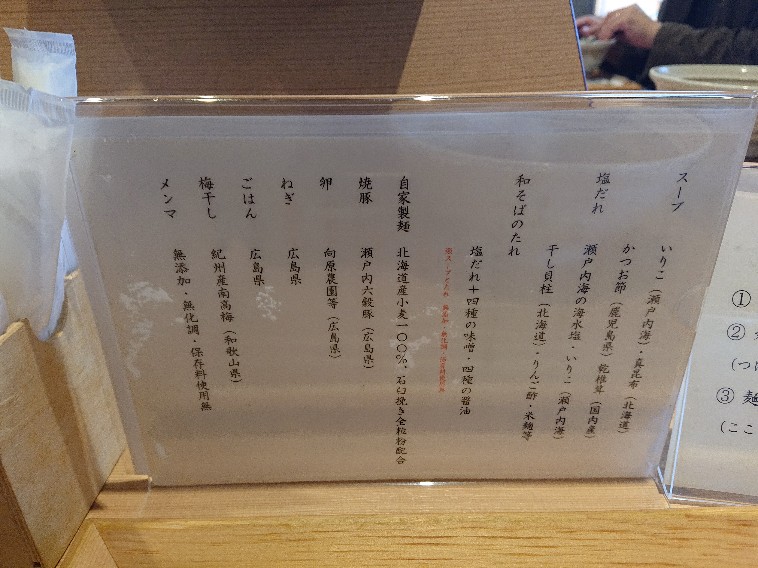 スープ
いりこ（瀬戸内海）・真昆布（北海道）
かつお節（鹿児島県）乾椎茸（国内産）
塩だれ
瀬戸内海の海水塩・いりこ（瀬戸内海）
干し貝柱（北海道）・りんご酢・米麹等
和そばのたれ
塩だれ＋四種の味噌・四種の醤油
自家製麺 北海道産小麦一〇〇％、石臼挽き全粒粉配合
焼豚 瀬戸内六穀豚（広島県）
卵 向原農園等（広島県）
ねぎ 広島県
ごはん 広島県
梅干し 紀州産南高梅（和歌山県）
メンマ 無添加・無化調・保存料使用無
①
②
③ 麺
（ここ